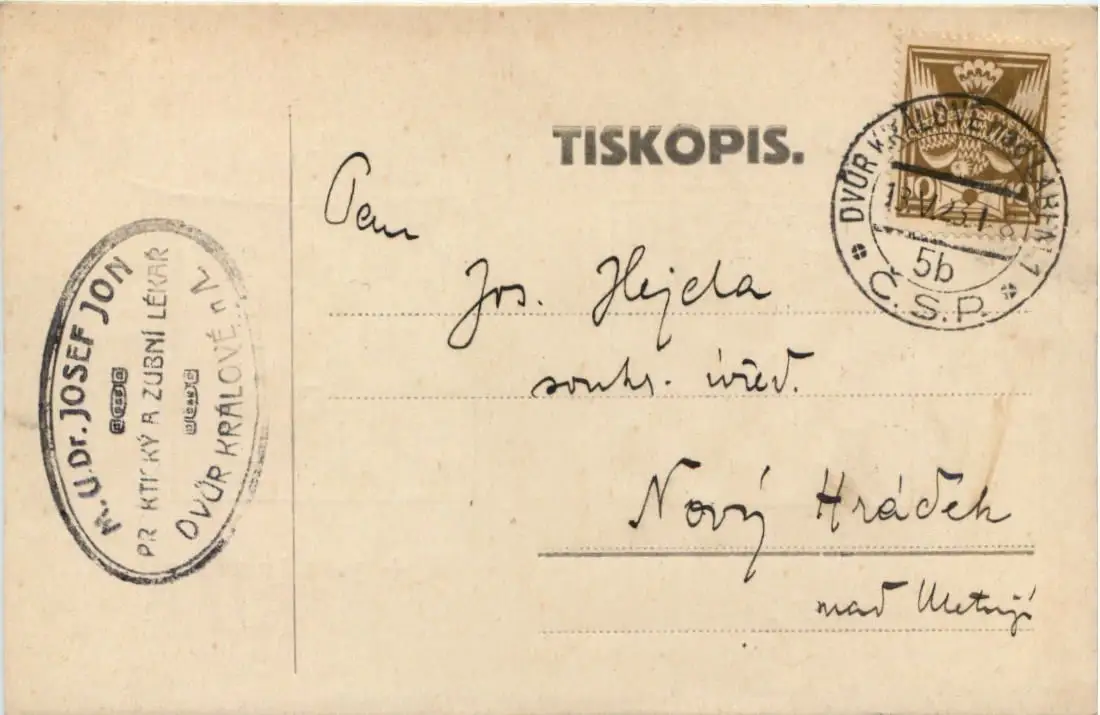 TISKOPIS.
DVŮR KRÁLOVÉ nad LABEM 1
13.V.23.1
5b
Č.S.P.
10
M.U.Dr. JOSEF JON
PR KTICKÝ A ZUBNÍ LÉKAŘ
DVŮR KRÁLOVÉ n/L
Pan
Jos. Hejda
souhs. úřed.
Nový Hrádek
nad Metují